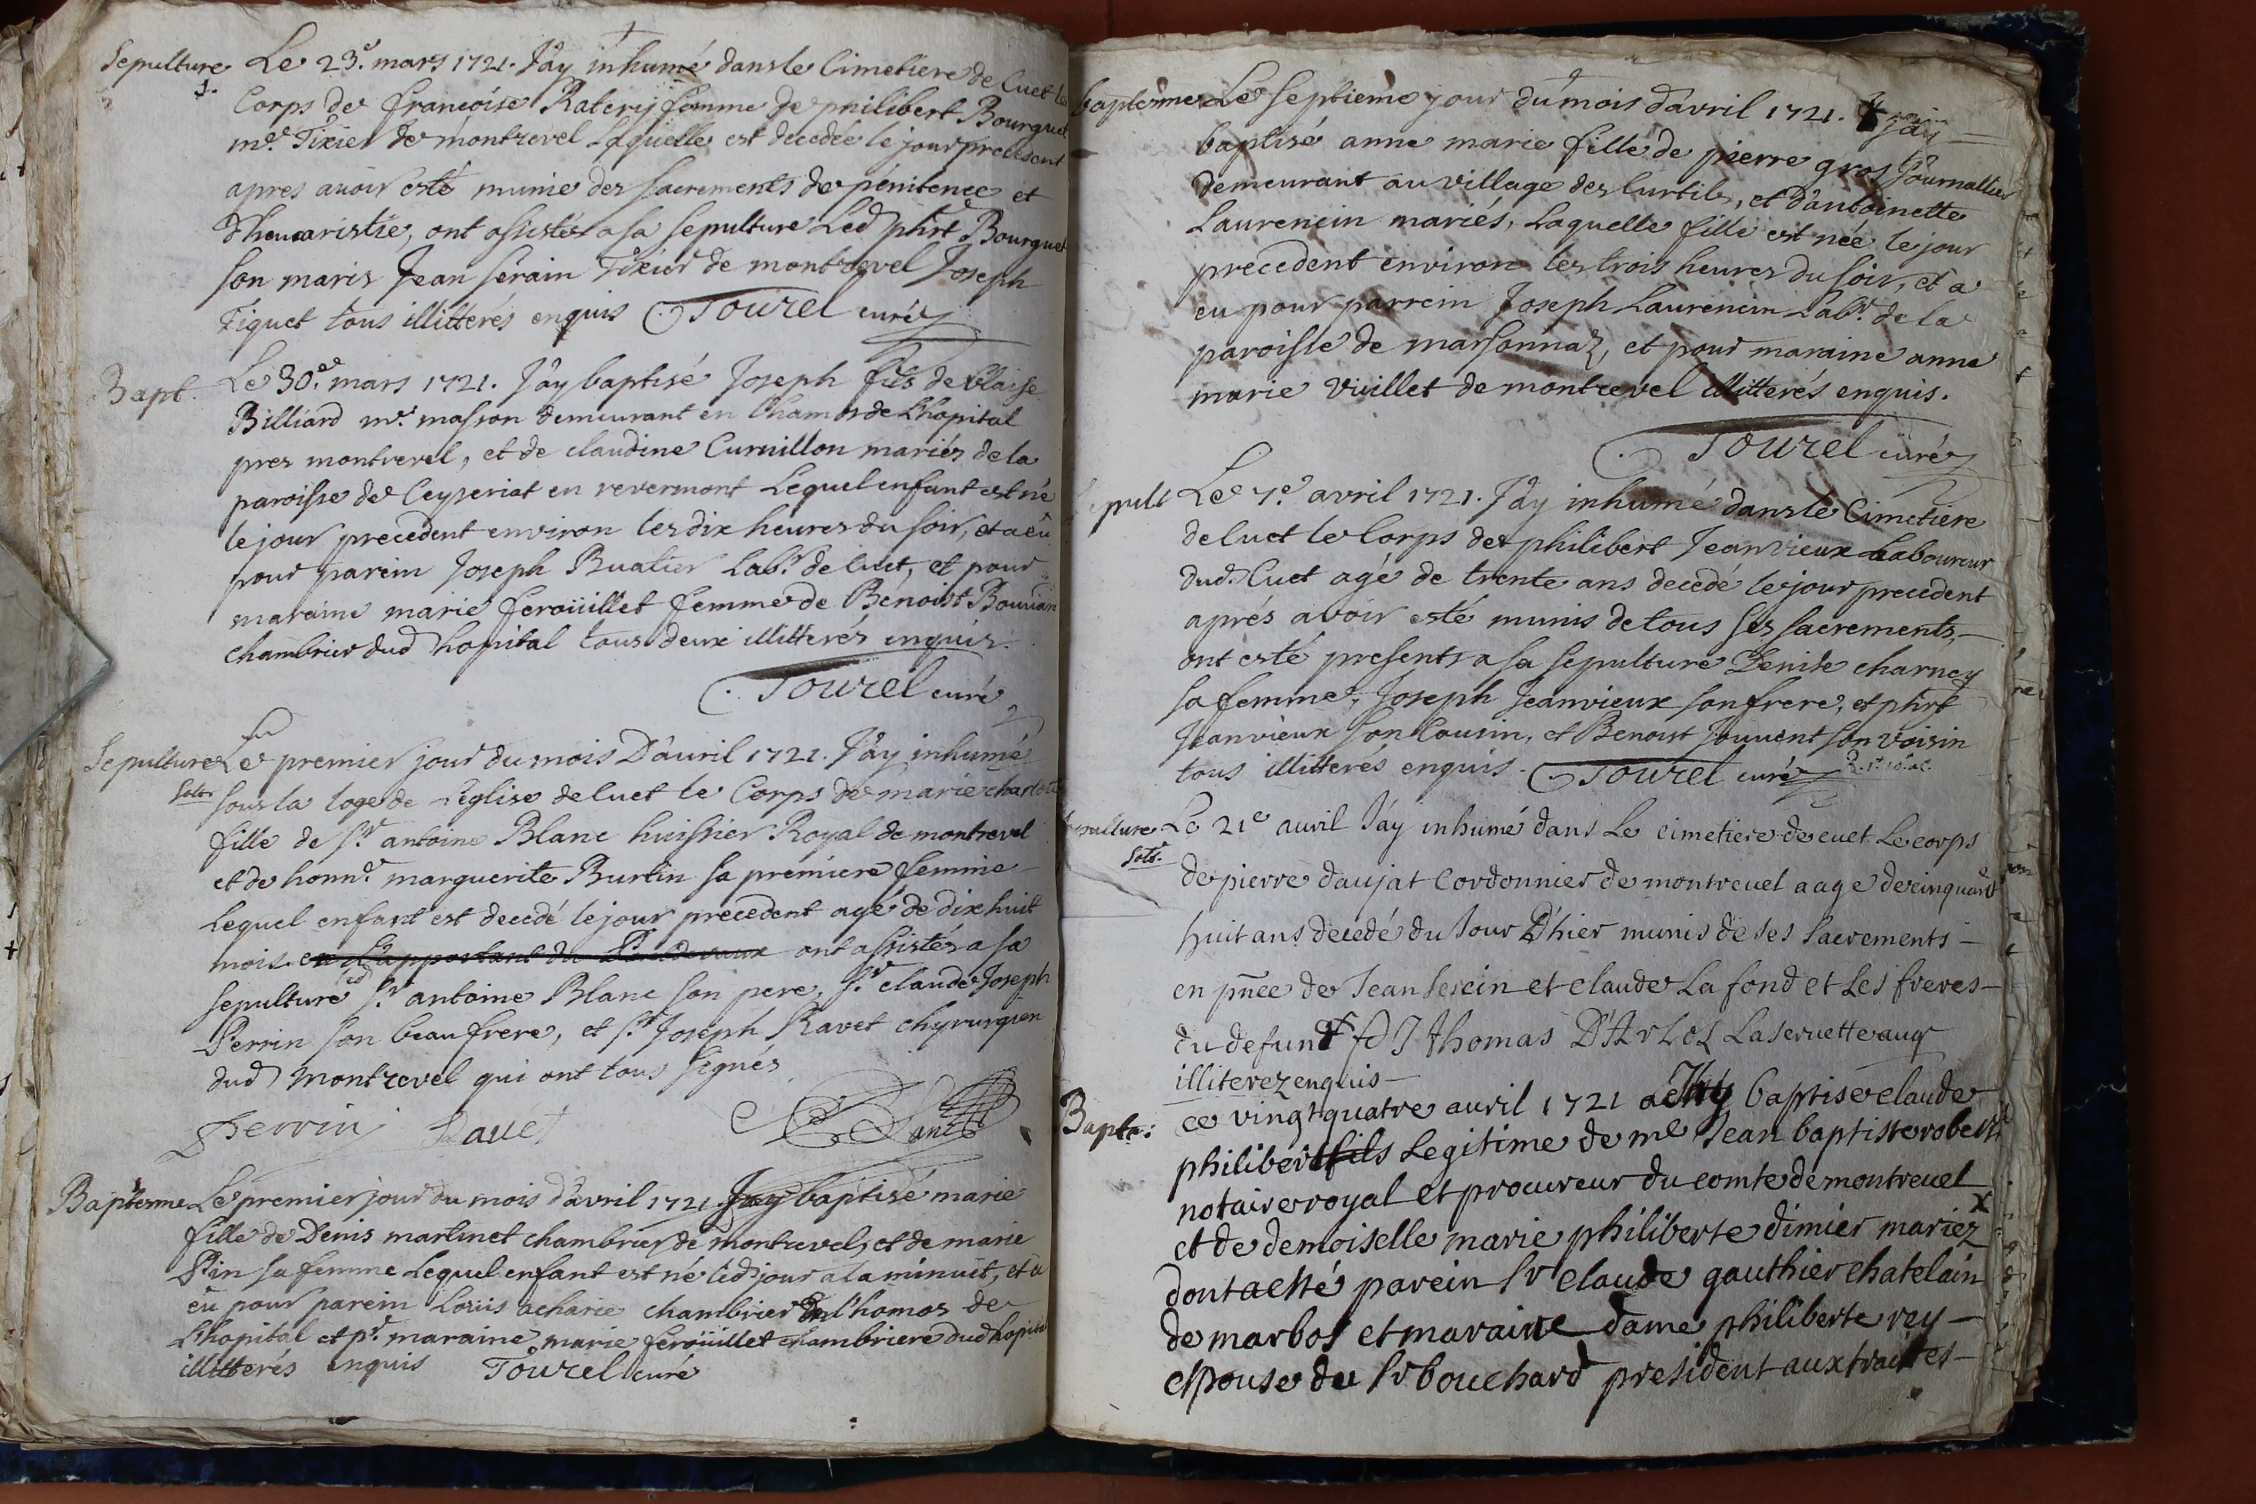 Sepulture Le 23.e mars 1721. J'ay inhumé dans le Cimetiere de Cuet le
1.
Corps de francoise Raterý femme de philibert Bourguet
m.e Tixier de montrevel Laquelle est decedée le jour precedent
apres auoir esté munie des sacrements de pénitence et
d'heucaristie, ont assistés a sa sepulture Led phirt Bourguet
son maris Jean serain Tixier de montrevel Joseph
Tiquet tous illitterés enquis Tourel curé
Bapt. Le 30.e mars 1721. J'ay baptisé Joseph fils de blaise
Billiard m.e masson demeurant en l'hamos de L'hopital
pres montrevel, et de claudine Curnillon mariés de la
paroisse de Ceyseriat en revermont Lequel enfant est né
le jour precedent environ les dix heures du soir, et a eû
pour parein Joseph Buatier Lab.r de Cuet, et pour
maraine marie feroüillet femme de Bénoist Bouvian
chambrier dud hopital tous deux illitterés enquis.
Tourel curé
Sepulture Le premier jour du mois D'auril 1721. J'ay inhumé
sous la loge de L'eglise de Cuet le Corps de marie charlotte
fille de s.r antoine Blanc huissier Royal de montrevel
et de honn.e marguerite Burtin sa premiere femme
Lequel enfant est decedé le jour precedent agé de dix huit
mois. ont assistés a sa
sepulture led s.r antoine Blanc son pere, s.r claude Joseph
Perrin son beaufrere, et s.r Joseph Ravet chyrurgien
dud montrevel qui ont tous signés
Perrin Rauet Blanc
Baptesme Le premier jour du mois d'avril 1721 J'ay baptisé marie
fille de Denis martinet chambrier de montrevel, et de marie
Pin sa femme Lequel enfant est né led jour a la minuit, et a
eû pour parein Louis acharie chambrier en l'hamos de
L'hopital et p.r maraine marie feroüillet chambriere dud hopital
illitterés enquis Tourel curé
baptesme Le septieme jour du mois d'avril 1721. J'ay
baptisé anne marie fille de pierre gros Journallier
demeurant au village des Curtils, et d'antoinette
Laurencin mariés, Laquelle fille est née le jour
precedent environ les trois heures du soir, et a
eu pour parrein Joseph Laurencin Lab.r de la
paroisse de marsonnaz, et pour maraine anne
marie vuillet de montrevel illitterés enquis.
Tourel curé
sepult Le 7.e avril 1721. J'ay inhumé dans le Cimetiere
de Cuet le Corps de philibert Jeanvieux Laboureur
dud. Cuet agé de trente ans decedé le jour precedent
aprés avoir esté munis de tous ses sacrements
ont esté presents a sa sepulture Denise charney
sa femme, Joseph Jeanvieux son frere, et phirt
Jeanvieux son Cousin, et Benoist Jouuent son voisin
tous illitterés enquis. Tourel curé
sepulture Le 21e auril J'ay inhumé dans Le cimetiere de cuet Le corps
de pierre daujat Cordonnier de montreuel aage de cinquante
huit ans decedé du Jour D'hier munis de ses sacrements
en pñce de Jean serein et claude La fond et Les freres
du defunt thomas D'Arloz La seruette auq
illiterez enquis
Bapte: ce vingt quatre auril 1721 a esté baptisé claude
philibert fils Legitime de me Jean baptiste robert
notaire royal et procureur du comte de montreuel
et de demoiselle marie philiberte dimier mariez
dont a esté parein sr claude gauthier chatelain
de marbos et maraine dame philiberte rey
espouse du sr bouchard president aux traittes